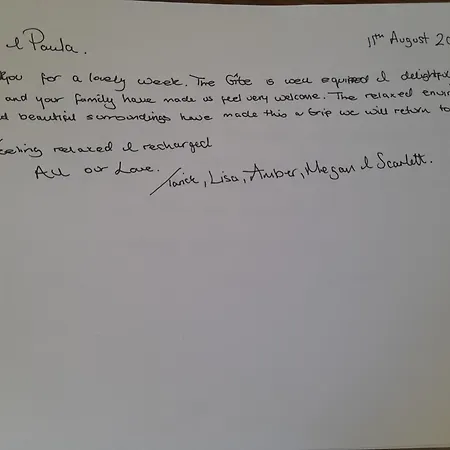 & Paula.
11th August 20
you for a lovely week. The Gîte is well equipped & delightful
and your family have made us feel very welcome. The relaxed envir
beautiful surroundings have made this a trip we will return to
feeling relaxed & recharged
All our Love.
Tarick, Lisa, Amber, Megan & Scarlett.